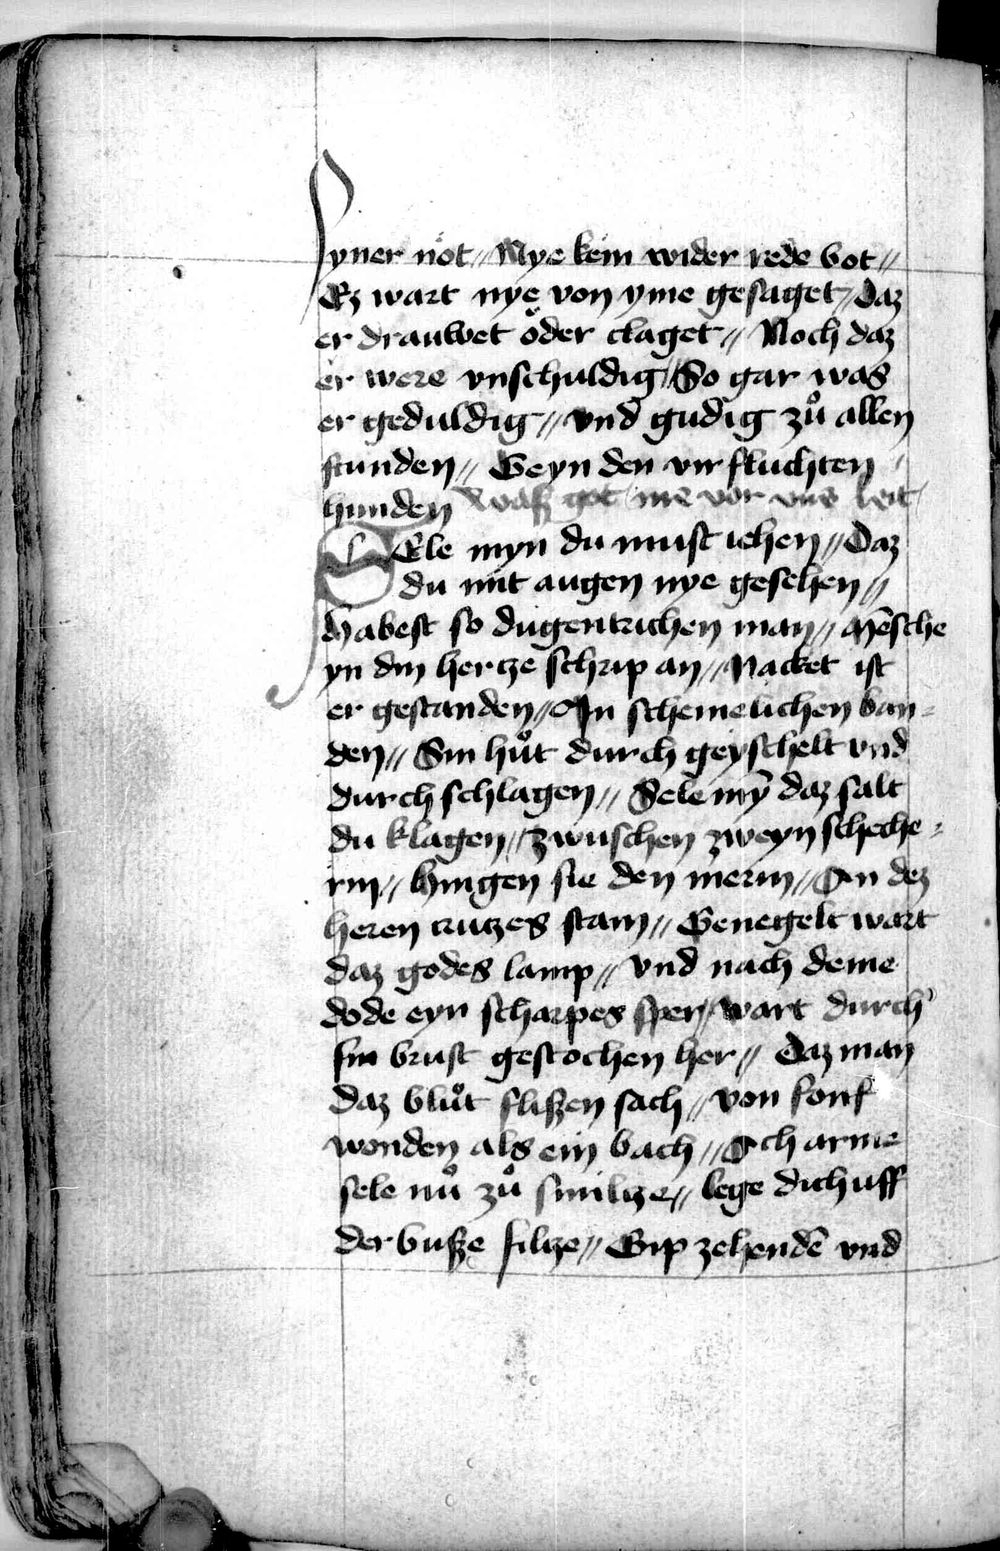 Syner not // Nye kein wider rede bot //
Ez wart nye von yme gesaget // Daz
er drauwet oder claget // Noch daz
er were vnschuldig // So gar was
er geduldig // vnd gudig zů allen
stunden // Geyn den vir fluchten
hunden Waß got vor vns leit
SEle myn du must iehen // Daz
du mit augen nye gesehen //
Habest so dugentrichen man // Mēsche
yn din hertze schrip an // Nacket ist
er gestanden // An schemelichen ban=
den // Sin hůt durch geyschelt vnd
durch schlagen // Sele mȳ daz salt
du klagen // Zwuschen zweyn scheche=
rin // Hingen sie den // An dez
heren crutzes stam // Genegelt wart
daz godes lamp // vnd nach deme
dode eyn scharpes sper // wart durch
sin brust gestochen her // Daz man
daz blůt flißen sach // von fonf
wonden als ein bach // Ach arme
sele nů zů smiltze // lege dich uff
der buße filtze // Gip zehendē vnd